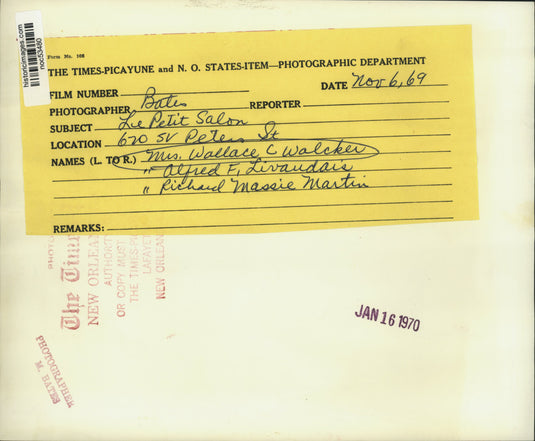 historicimages.com
noc53480
Form No. 108
THE TIMES-PICAYUNE and N. O. STATES-ITEM—PHOTOGRAPHIC DEPARTMENT
FILM NUMBER DATE Nov 6, 69
PHOTOGRAPHER Bates REPORTER
SUBJECT Le Petit Salon
LOCATION 620 St Peters St
NAMES (L. TO R.) Mrs. Wallace C Walcker
" Alfred F, Livaudais
" Richard Massie Martin
REMARKS:
PHOTO
The Time
NEW ORLEAN
AUTHORIT
OR COPY MUST
THE TIMES-PI
LAFAYET
NEW ORLEAN
JAN 16 1970
PHOTOGRAPHER
M. BATES